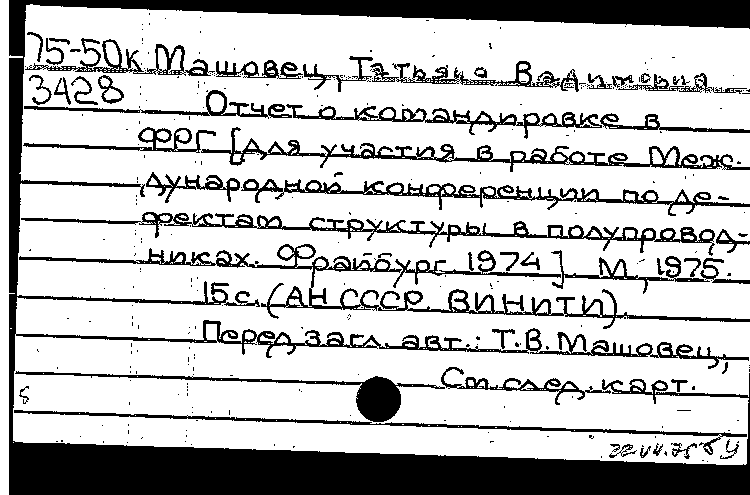 75-50к Машовец, Татьяна Вадимовна
3428 Отчет о командировке в
ФРГ [для участия в работе Меж-
дународной конференции по де-
фектам структуры в полупровод-
никах. Фрайбург. 1974]. М., 1975.
15с. (АН СССР. ВИНИТИ).
Перед загл. авт.: Т.В. Машовец,
См. след. карт.
8